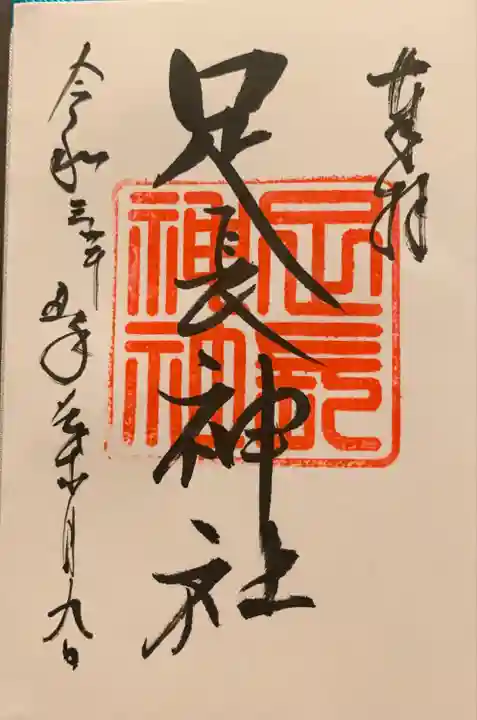 奉拝
足長神社
令和三年 丑年 葉月九日
足長
神社